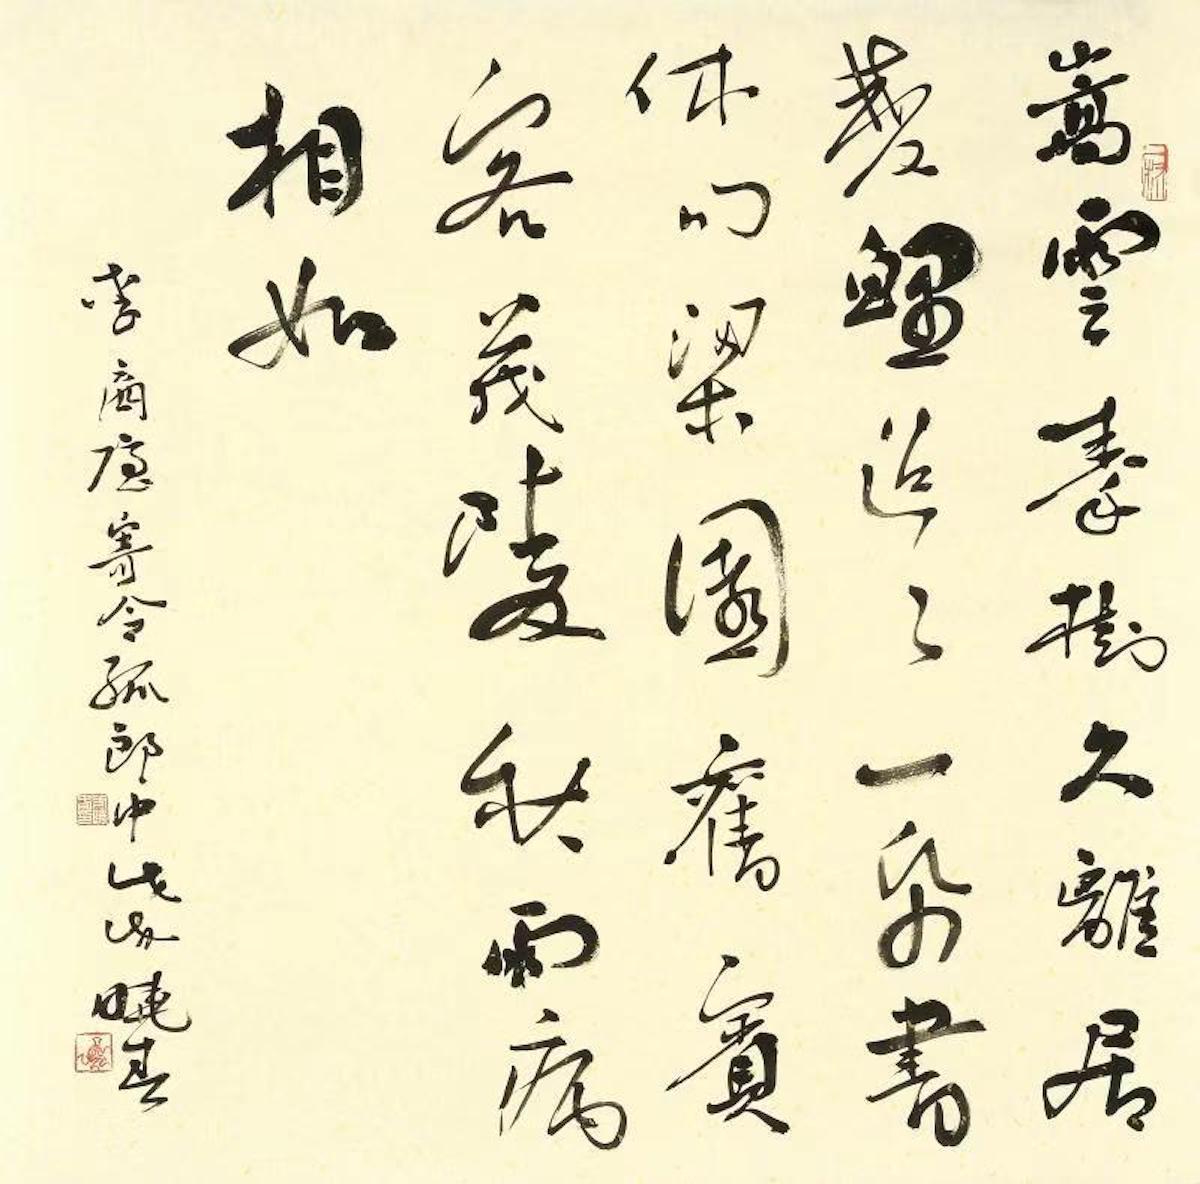 嵩雲秦樹久離居
雙鯉迢々一紙書
休問梁園舊賓
客茂陵秋雨病
相如
李商隱寄令狐郎中曉春